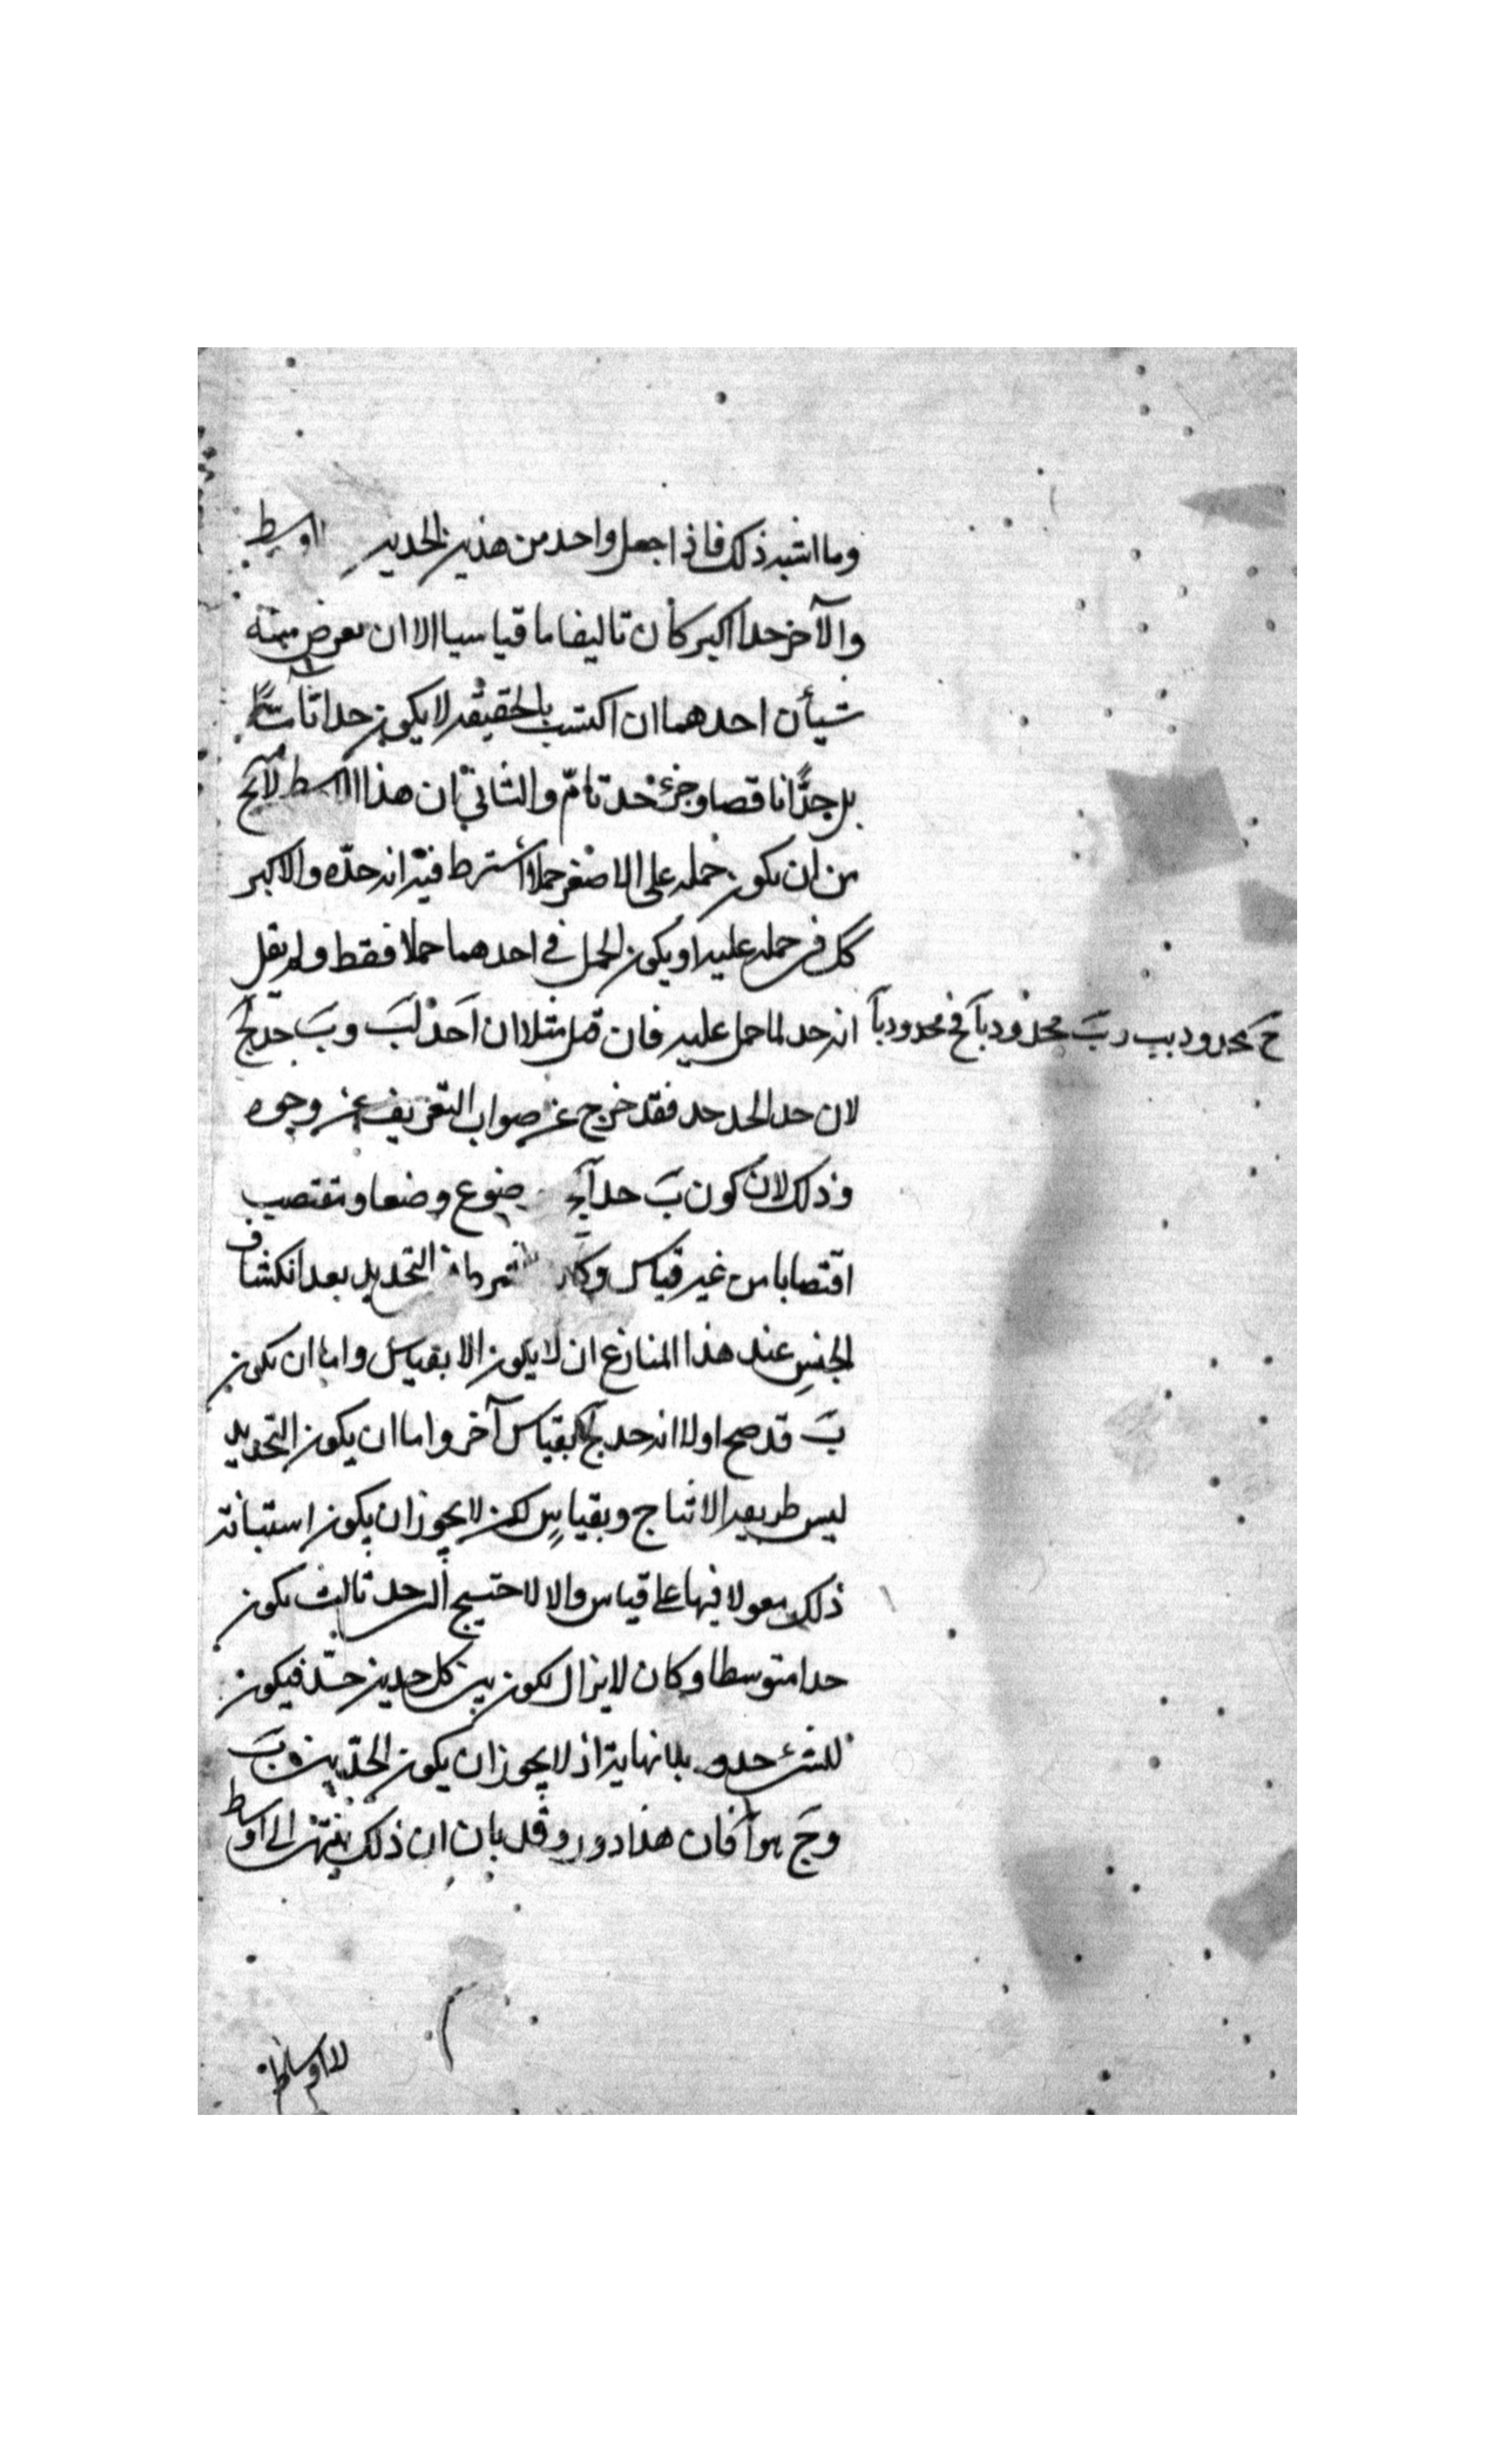 وما اشبه ذلك فاذا جعل واحد من هذين الحدين اوسط
والآخر حدا اكبر كان تاليفا ما قياسيا الا ان يعرض منه
شيأن احدهما ان اكتسب بالحقيقة لا يكون حدا تاما
بل حدًّا ناقصا وجزء حد تامّ والثاني ان هذا الاوسط لا يخ
من ان يكون حمله على الاصغر حملا اشترط فيه انه حدّه والاكبر
كل في حمله عليه او يكون الحمل في احدهما حملا فقط ولم يقل
انه حد لما حمل عليه فان قيل مثلا ان آ حد لبَ وبَ حد لجَ
ج محدود بب وبَ محدود بآ فج محدود بآ
لان حد الحد حد فقد خرج عن صواب التعريف عن وجوه
وذلك لان كون بَ حد آ وضعا ومقتصب
اقتصابا من غير قياس التحديد بعد انكشاف
الجنس عند هذا المنازع ان لا يكون الا بقياس واما ان يكون
بَ قد صح اولا انه حد لجَ بقياس آخر واما ان يكون التحديد
ليس طريقه الانتاج وبقياس لكن لا يجوز ان يكون استبانة
ذلك معولا فيها على قياس والا لاحتيج الى حد ثالث يكون
حدا متوسطا وكان لا يزال يكون بين كل حدين حدّ فيكون
للشيء حدود بلا نهاية اذ لا يجوز ان يكون الحدّ بين بَ
وجَ هو آ فان هذا دور وقد بان ان ذلك ينتهى الى اوسط
لا اوساط